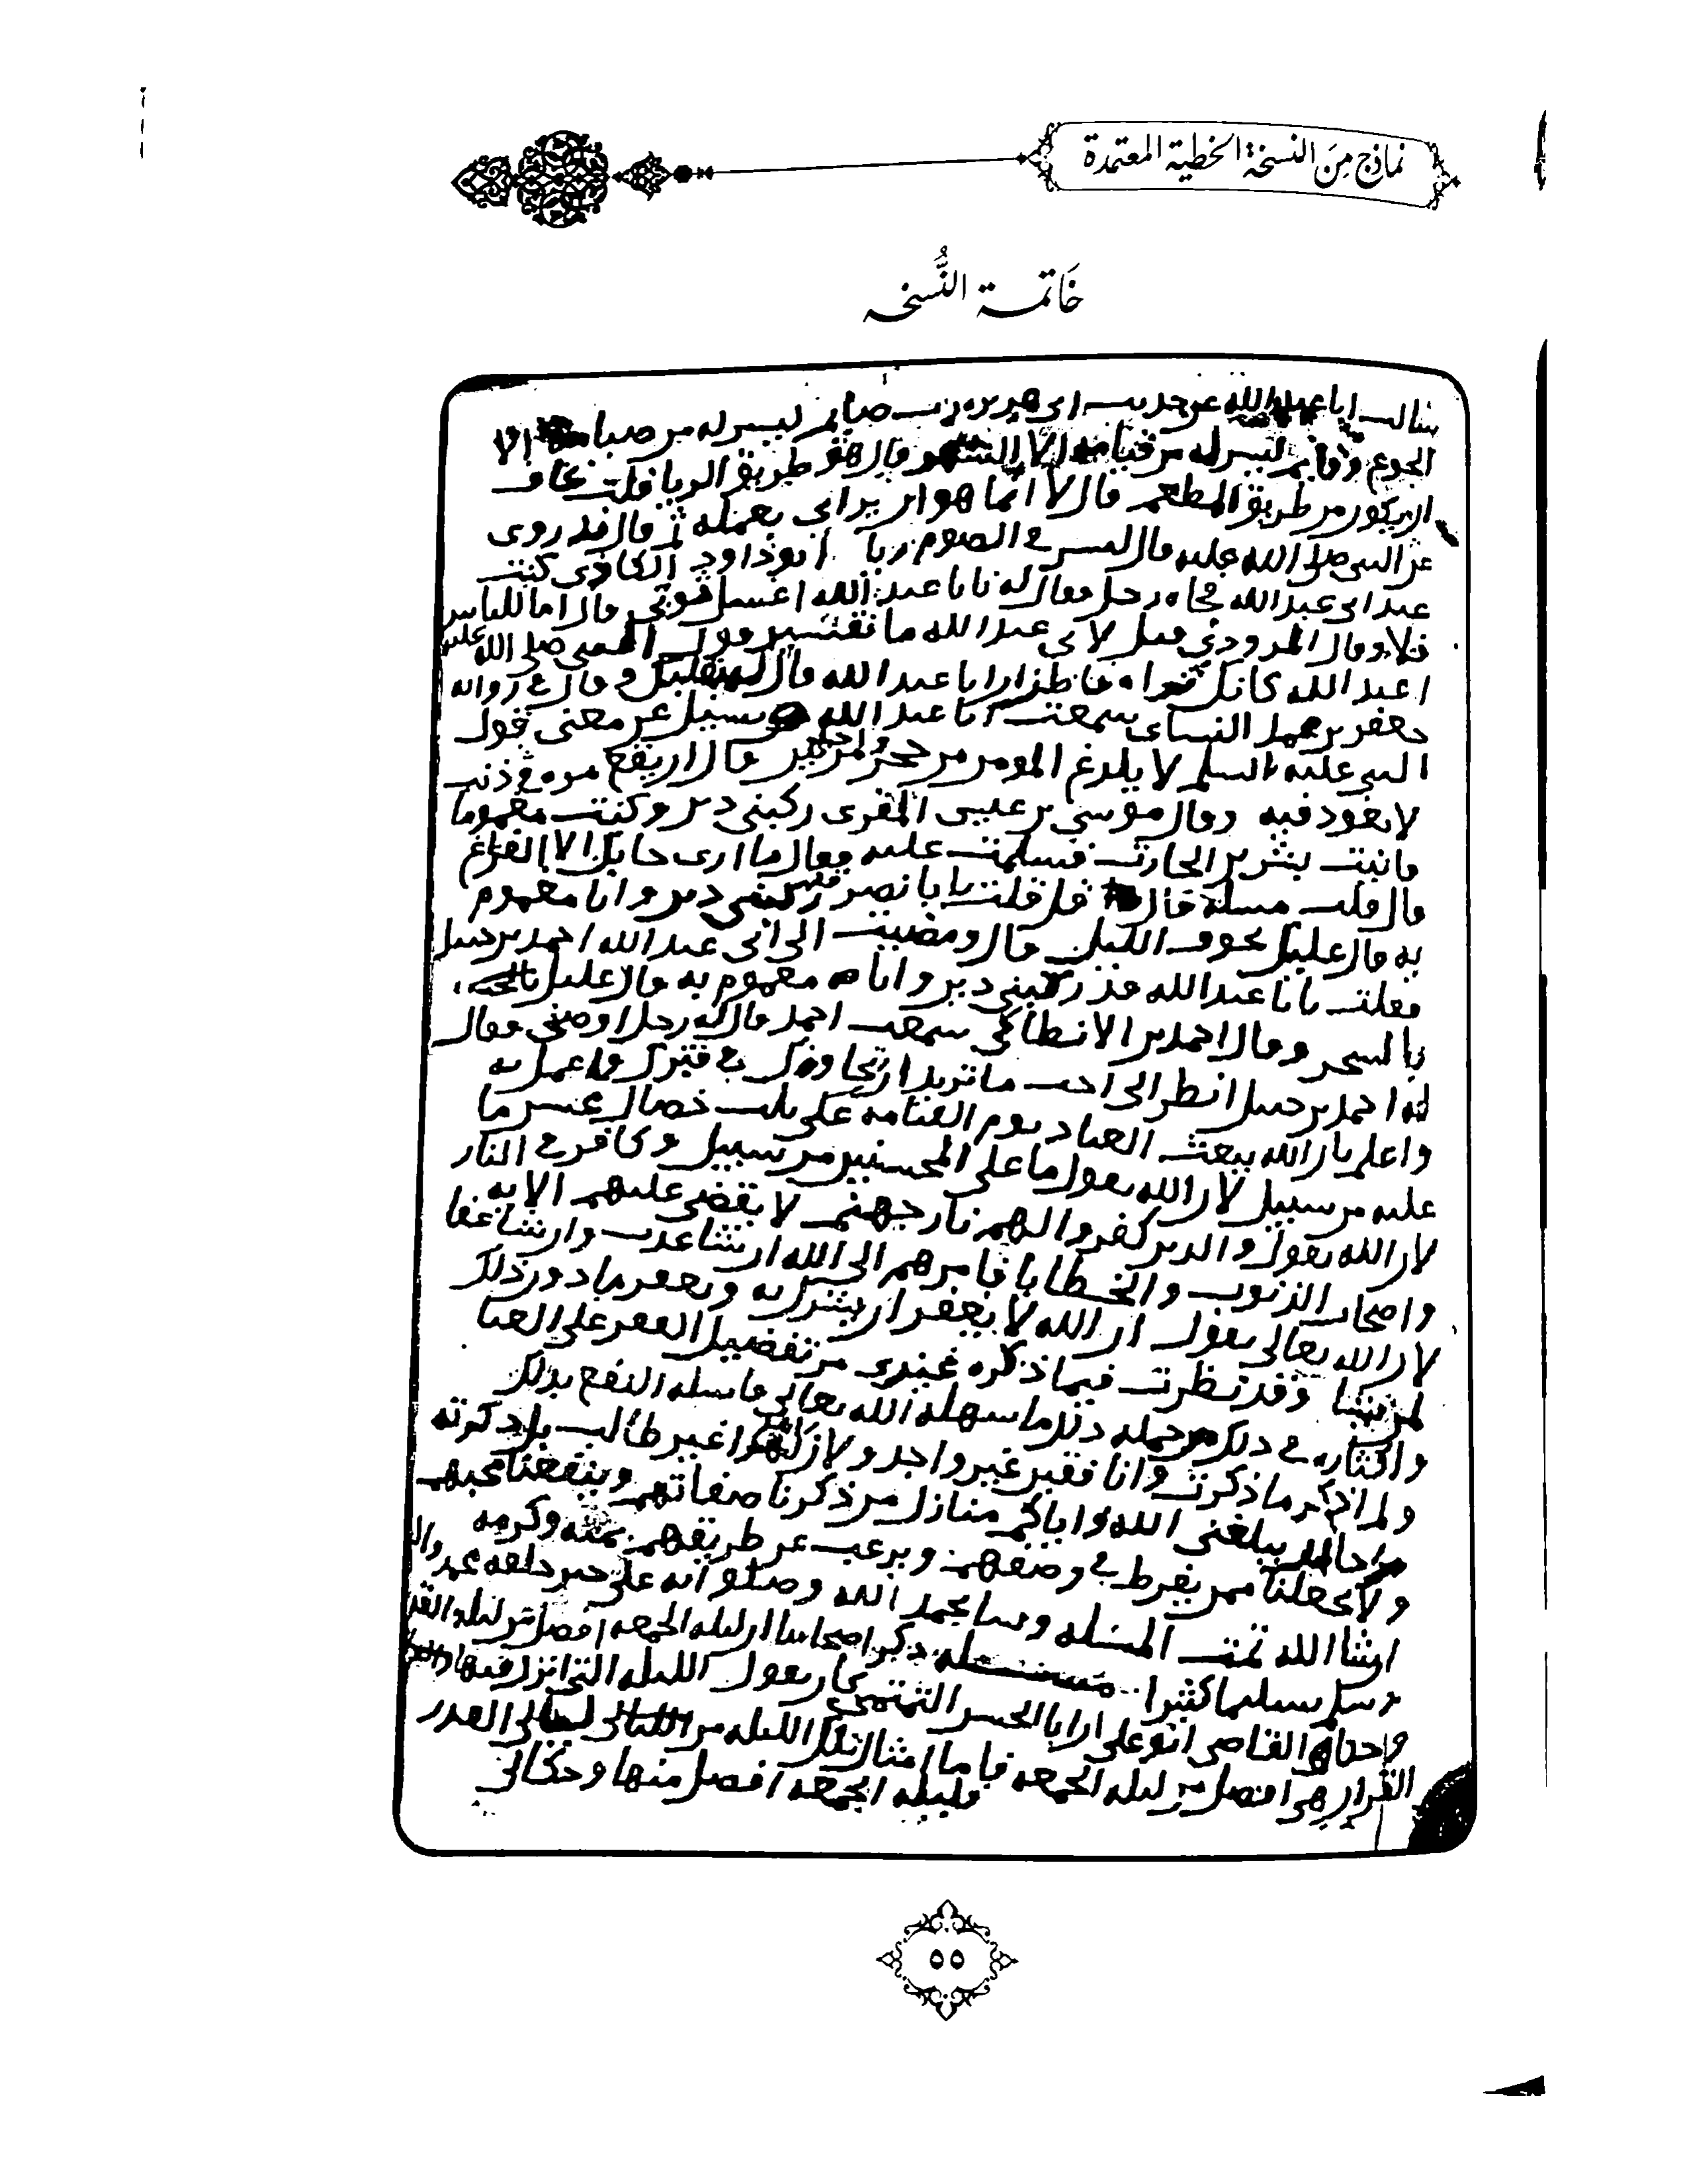 نماذج مِنَ النسخة الخطية المعتمدة
خَاتمة النُّسخة
سالت ابا عبد الله عن حديث ابى هريره رب صايم ليس له من صيامه الا
الجوع وقايم ليس له من قيامه الا السهر قال هو طريق الريا قلت
ان يكون من طريق المطعم قال لا انما هو ان يراى بعمله ثم قال قد روى
عن النبى صلى الله عليه قال ليس فى الصوم ريا ابو داود الكاذى كنت
عند ابى عبد الله فجاه رجل فقال له يا ابا عبد الله اغسل ثوبى قال اما للناس
فلا وقال المروذي قيل لابى عبد الله ما تفسير قول النبى صلى الله عليه
اعبد الله كانك تراه
جعفر بن محمد النساى سمعت ابا عبد الله يسيل عن معنى قول
النبى عليه السلم لا يلدغ المومن من جحر مرتين قال ان يقع مره فى ذنب
لا يعود فيه وقال موسى بن عيسى المقرى ركبنى دين وكنت مغموما
فاتيت بشر بن الحارث فسلمت عليه فقال ما ارى جا بك الا الفراغ
قال قلت مسلة قال قلت يا با نصر ركبنى دين وانا مغموم
به قال عليك بجوف الليل قال ومضيت الى ابى عبد الله احمد بن حنبل
فقلت يا با عبد الله قد ركبنى دين وانا مغموم به قال عليك
بالسحر وقال احمد بن الانطاكى سمعت احمد قال له رجل اوصنى فقال
له احمد بن حنبل انظر الى احب ما تريد ان يجاورك فى قبرك واعمل به
واعلم بان الله يبعث العباد يوم القيامه على ثلث خصال محسن ما
عليه من سبيل لان الله يقول ما على المحسنين من سبيل وكافر فى النار
لان الله يقول والدين كفروا لهم نار جهنم لا يقضى عليهم الايه
واصحاب الذنوب والخطايا فامرهم الى الله ان شا عذب وان شا عفا
لان الله تعالى يقول ان الله لا يغفر ان يشرك به ويغفر ما دون ذلك
لمن يشا وقد نظرت فيما ذكره غيرى من تفضيل الفقر على الغنا
واكثاره فى ذلك من جمله ذلك ما سهله الله تعالى فاسله النفع بذلك
ولم اذكر ما ذكرت وانا فقير غير واجد ولا زاهدا غير طالب بل ذكرته
يبلغنى الله واياكم منازل من ذكرنا صفاتهم وينفعنا بمحبتهم
ولا يجعلنا ممن يفرط فى وصفهم ويرغب عن طريقهم بمنه وكرمه
ان شا الله تمت المسله وسا بحمد الله وصلواته على خير خلقه محمد واله
وسلم تسليما كثيرا مسله ذكر اصحابنا ان ليله الجمعه افضل من ليله القدر
وحكاه القاضى ابو على ان ابا الحسن التميمى كان يقول الليله التى انزل فيها
القران هى افضل من ليله الجمعه فاما امثال تلك الليله من ليالى القدر
فليله الجمعه افضل منها وحكا لى
٥٥